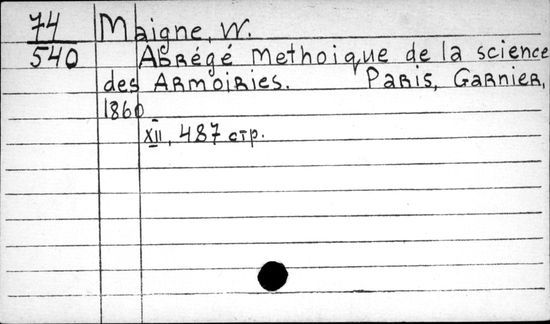 74 Maigne, W.
540 Abrégé Methoique de la science
des Armoiries. Paris, Garnier,
1860
XII, 487 стр.